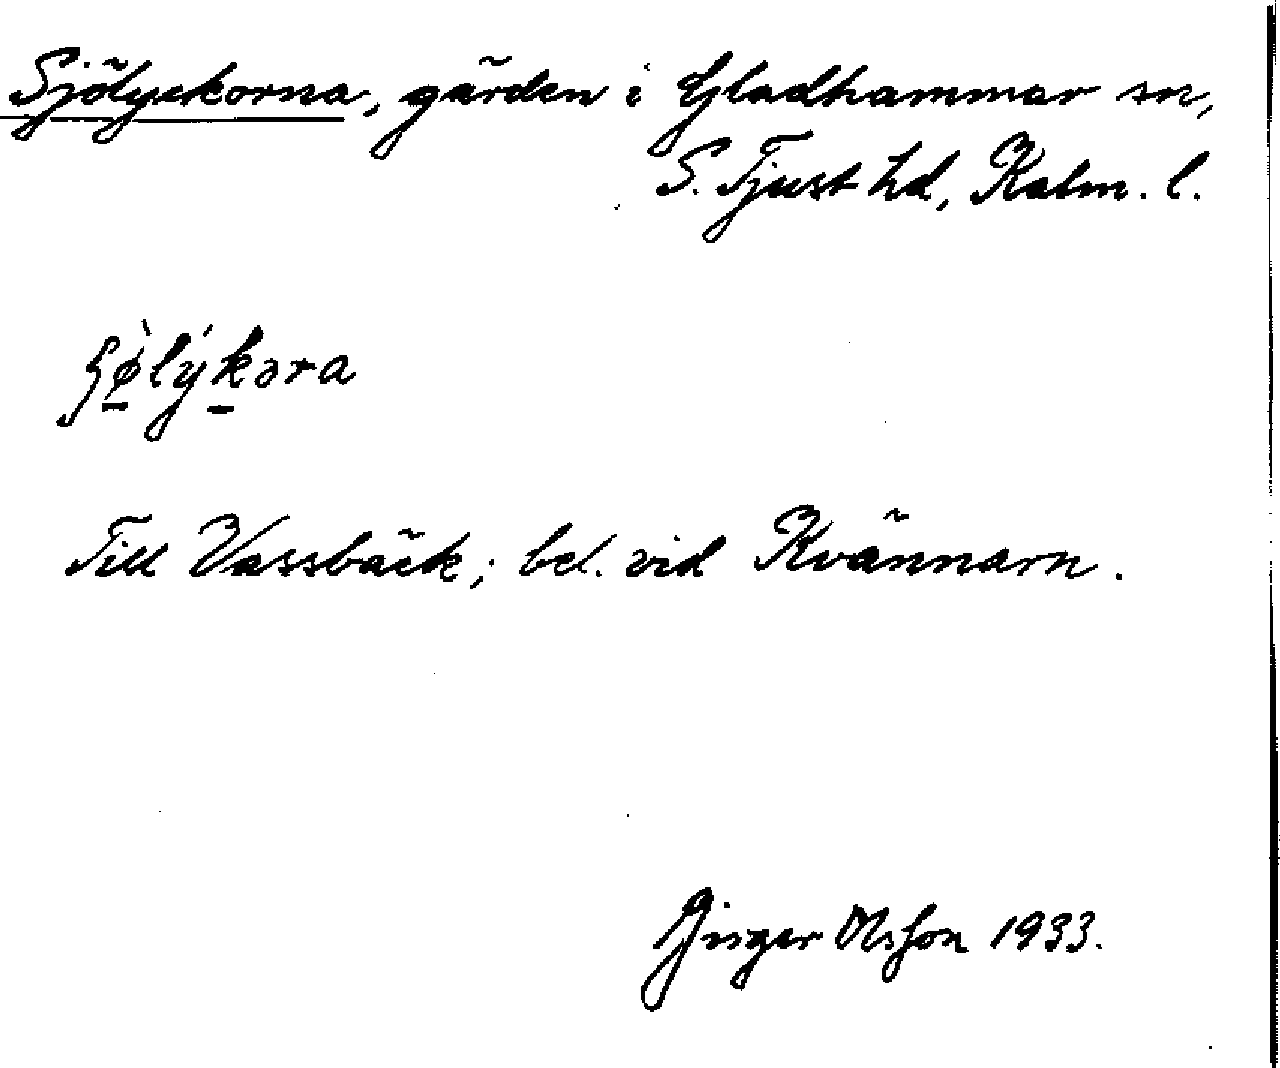 Sjölyckorna, gården i Gladhammar sn,
S. Tjust hd, Kalm. l.
Till Vassbäck; bel. vid Kvännarn.
Inger Olsson 1933.